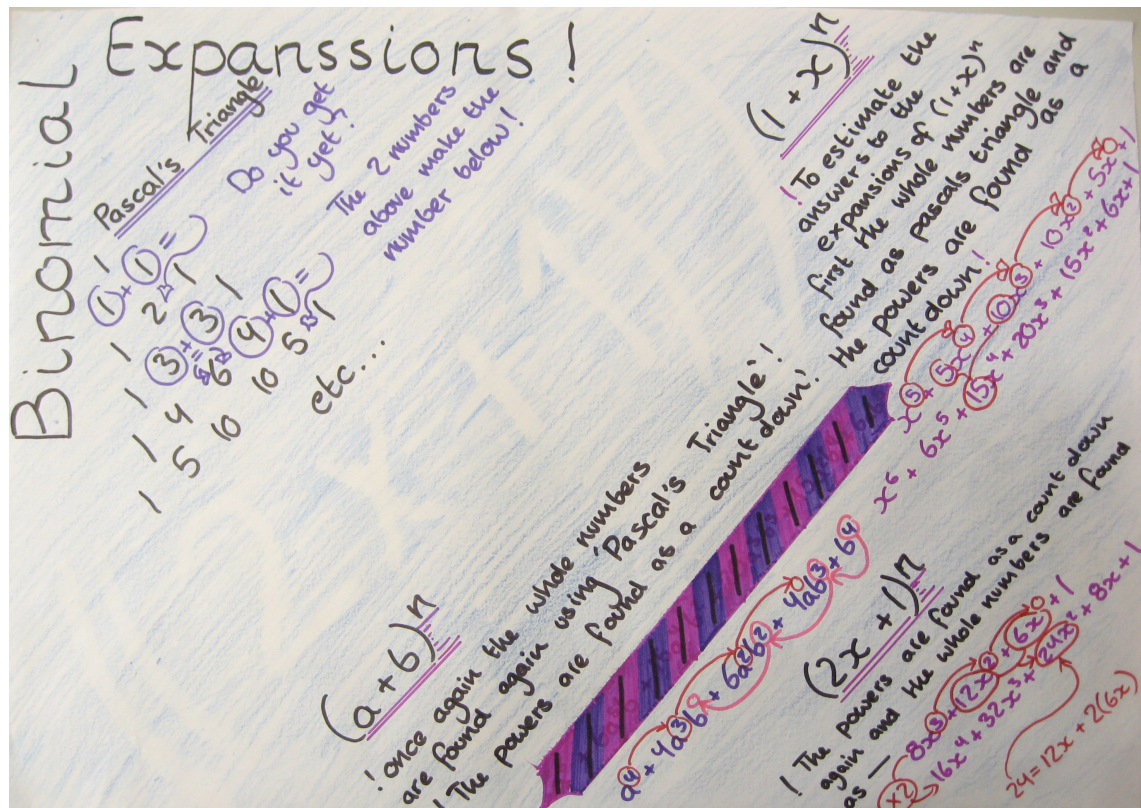 Binomial
Expanssions!
Pascal's Triangle
1
1 + 1 =
1 2 1
1 3 + 3 1
1 4 6 4 + 1 =
1 5 10 10 5 1
etc...
Do you get
it yet?
The 2 numbers
above make the
number below!
(1 + x)n
! To estimate the
answers to the
expansions of (1+x)n
first the whole numbers are
found as pascals triangle and
the powers are found as a
count down!
x5 + 5x4 + 10x3 + 10x2 + 5x + 1
x6 + 6x5 + 15x4 + 20x3 + 15x2 + 6x + 1
(a + b)n
! once again the whole numbers
are found again using 'Pascal's Triangle'!
! The powers are found as a count down!
a4 + 4a3b + 6a2b2 + 4ab3 + b4
(2x + 1)n
! The powers are found as a count down
again and the whole numbers are found
as _
8x3 + 12x2 + 6x + 1
x2
16x4 + 32x3 + 24x2 + 8x + 1
24 = 12x + 2(6x)